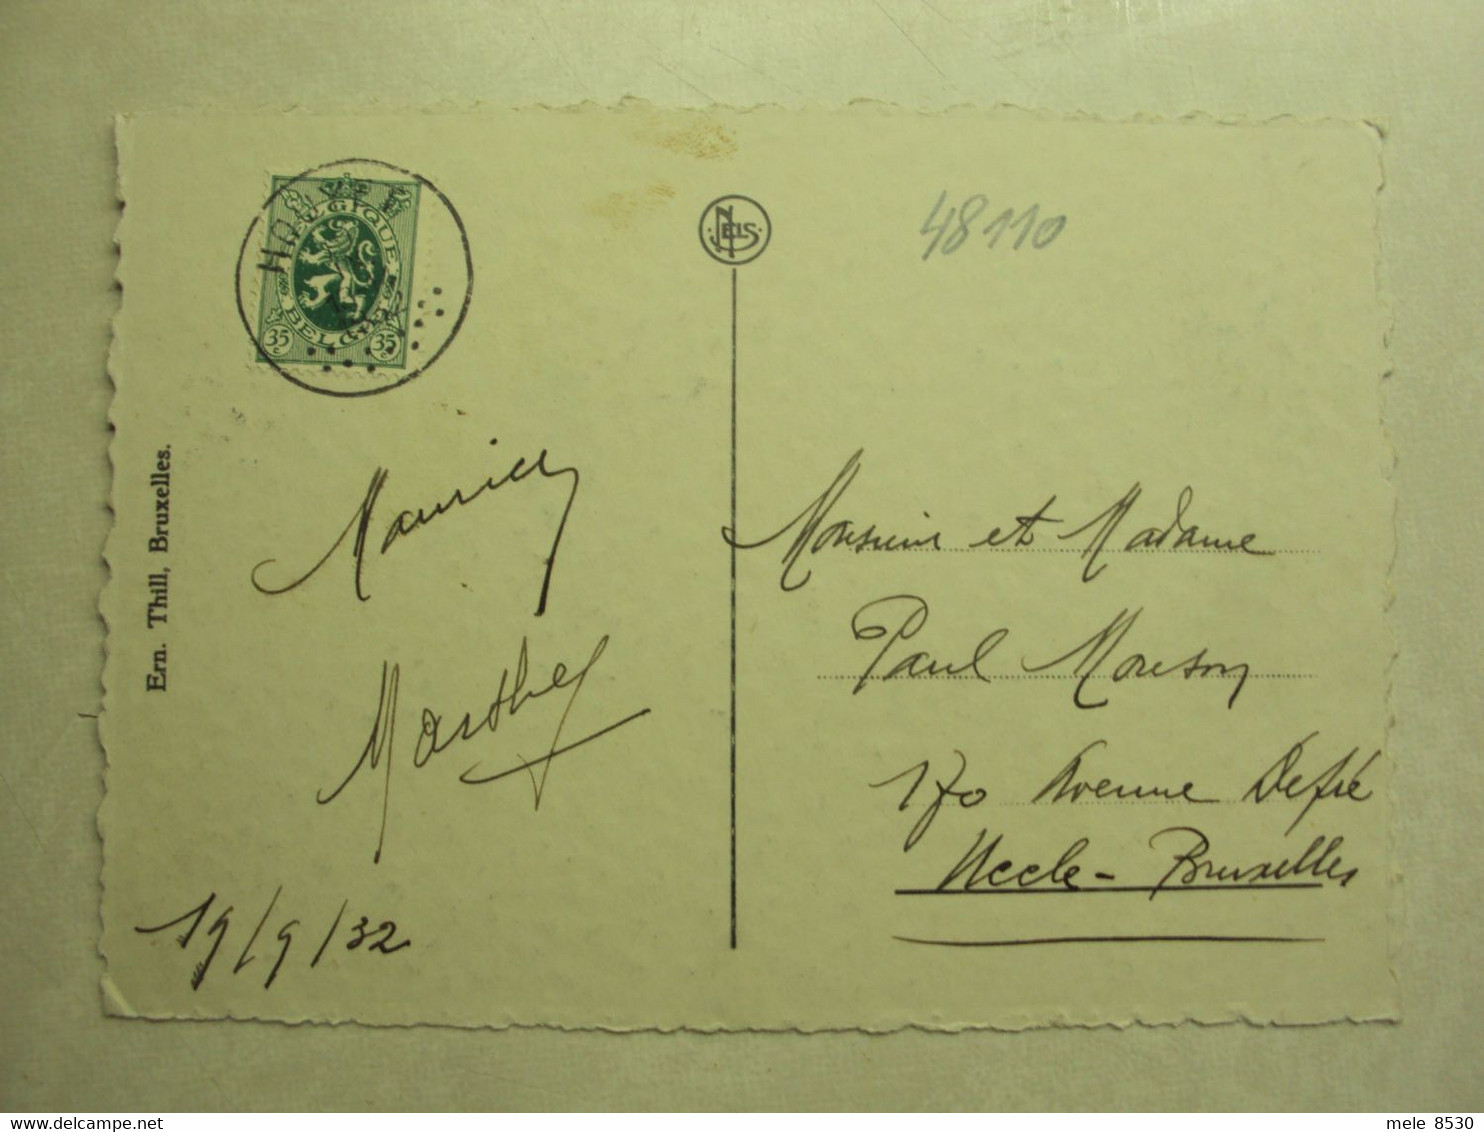 HOUYET
BELGIQUE
BELGIE
35 c
35 c
NELS
48110
Ern. Thill, Bruxelles.
Maurice
Marthe
19/9/32
Monsieur et Madame
Paul Mouson
170 Avenue Defré
Uccle - Bruxelles
mele 8530